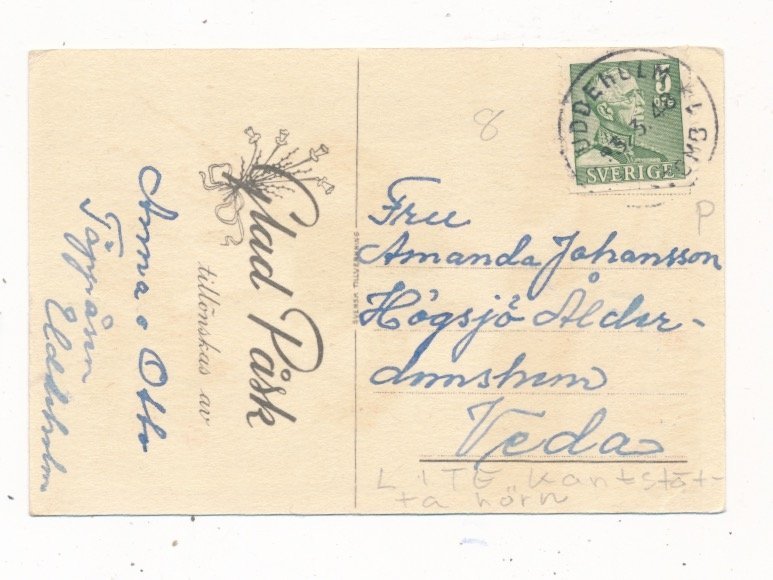 Glad Påsk
tillönskas av
Anna o Otto
Eldsholm
SVENSK TILLVERKNING
8
5
SVERIGE
UDDEHOLM
P
Fru
Amanda Johansson
Högsjö Ålder-
domshem
Veda
LITE kantstöt-
ta hörn